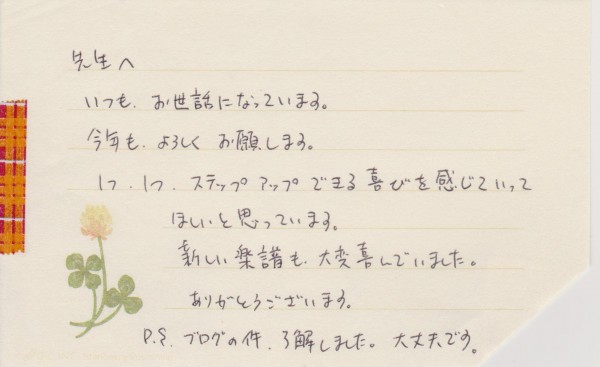 先生へ
いつも、お世話になっています。
今年も、よろしくお願いします。
1つ、1つ、ステップアップできる喜びを感じていって
ほしいと思っています。
新しい楽譜も、大変喜んでいました。
ありがとうございます。
P.S. ブログの件、了解しました。大丈夫です。